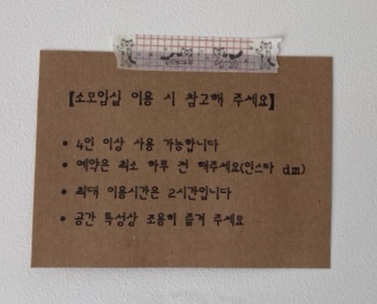 [소모임실 이용 시 참고해 주세요]
• 4인 이상 사용 가능합니다
• 예약은 최소 하루 전 해주세요(인스타 dm)
• 최대 이용시간은 2시간입니다
• 공간 특성상 조용히 즐겨 주세요